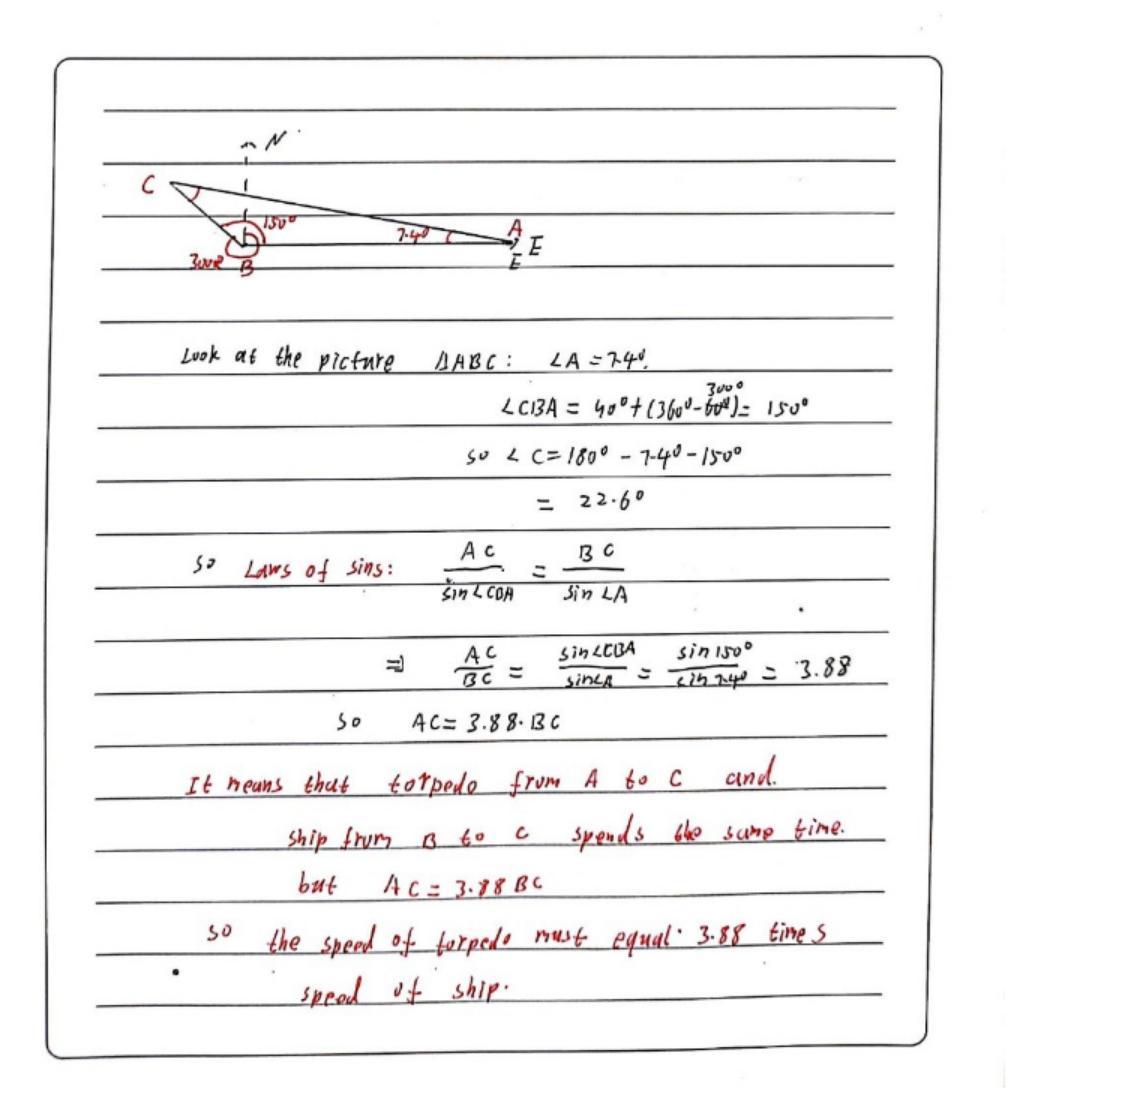 N
C
150°
7.4°
A
E
E
300°
B
Look at the picture ΔABC: ∠A = 7.4°.
300°
∠CBA = 40° + (360° - 60°) = 150°
so ∠C = 180° - 7.4° - 150°
= 22.6°
so Laws of sins: AC / sin∠CBA = BC / sin∠A
⇒ AC / BC = sin∠CBA / sin∠A = sin150° / sin7.4° = 3.88
so AC = 3.88·BC
It means that torpedo from A to C and.
ship from B to C spends the same time.
but AC = 3.88 BC
so the speed of torpedo must equal 3.88 times
speed of ship.